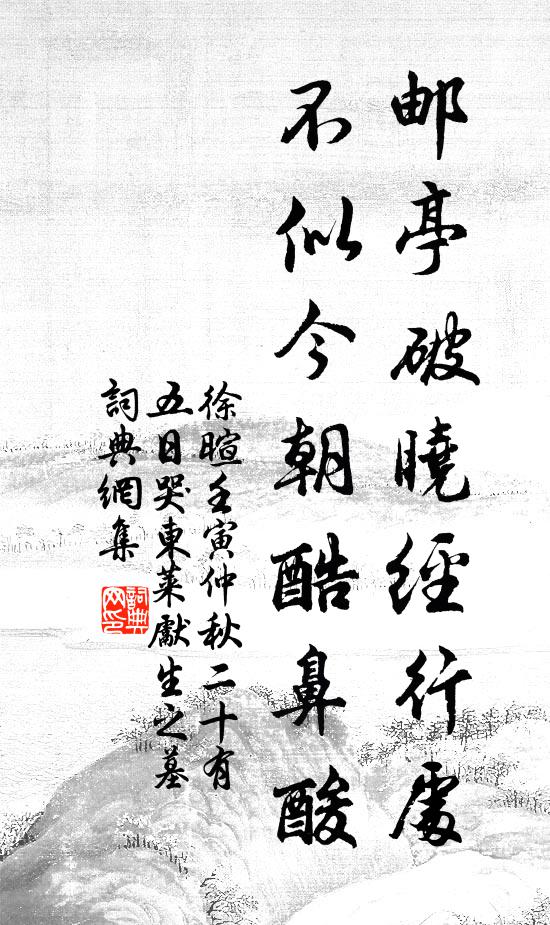 邮亭破曉經行處
不似今朝酷鼻酸
徐暄壬寅仲秋二十有
五日哭東萊獻生之墓
詞典網集
詞典网印